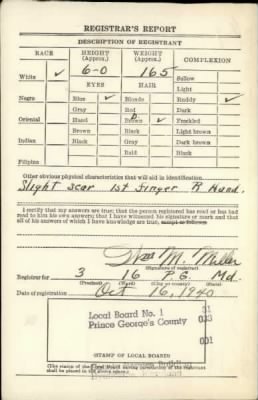 REGISTRAR'S REPORT
DESCRIPTION OF REGISTRANT
RACE HEIGHT (Approx.) WEIGHT (Approx.) COMPLEXION
White ✓ 6-0 165 Sallow
EYES HAIR Light
Negro Blue ✓ Blonde Ruddy ✓
Gray Red Dark
Oriental Hazel Brown ✓ Freckled
Brown Black Light brown
Indian Black Gray Dark brown
Bald Black
Filipino
Other obvious physical characteristics that will aid in identification
Slight scar 1st finger R Hand.
I certify that my answers are true; that the person registered has read or has had
read to him his own answers; that I have witnessed his signature or mark and that
all of his answers of which I have knowledge are true, except as follows:
Wm M. Miller
(Signature of registrar)
Registrar for 3 16 P. G. Md.
(Precinct) (State)
Date of registration Oct 16, 1940
Local Board No. 1 31
Prince George's County 033
001
STAMP OF LOCAL BOARD
(The stamp of the Local Board having jurisdiction of the registrant
shall be placed in the above space.)